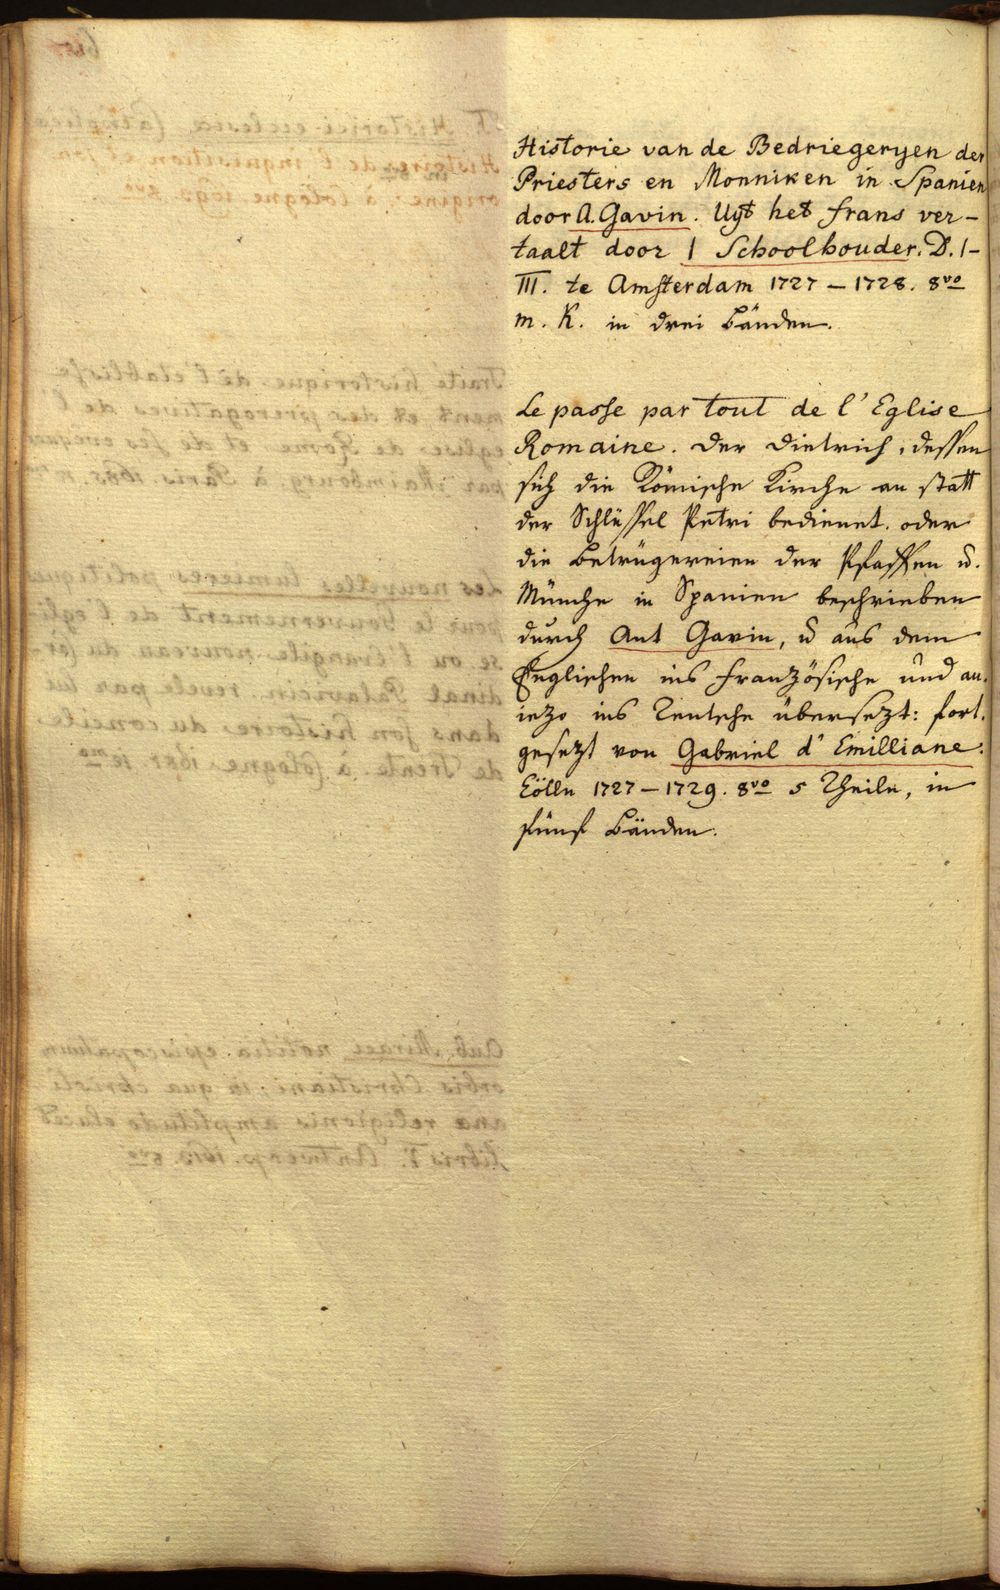 Historie van de Bedriegeryen der
Priesters en Monniken in Spanien
door A. Gavin. Uyt het frans ver-
taalt door I Schoolhouder. D. I-
III. te Amsterdam 1727 – 1728. 8vo
m. K. in drei Bänden.
Le passe par tout de l' Eglise
Romaine. Der Dietrich, dessen
sich die Römische Kirche an statt
der Schlüssel Petri bedienet. oder
die Betrügereien der Pfaffen u.
Münche in Spanien beschrieben
durch Ant Gavin, u aus dem
Englischen ins französische und an-
iezo ins Teutsche übersezt: fort-
gesezt von Gabriel d' Emilliane.
Cölln 1727 – 1729. 8vo 5 Theile, in
fünf Bänden.